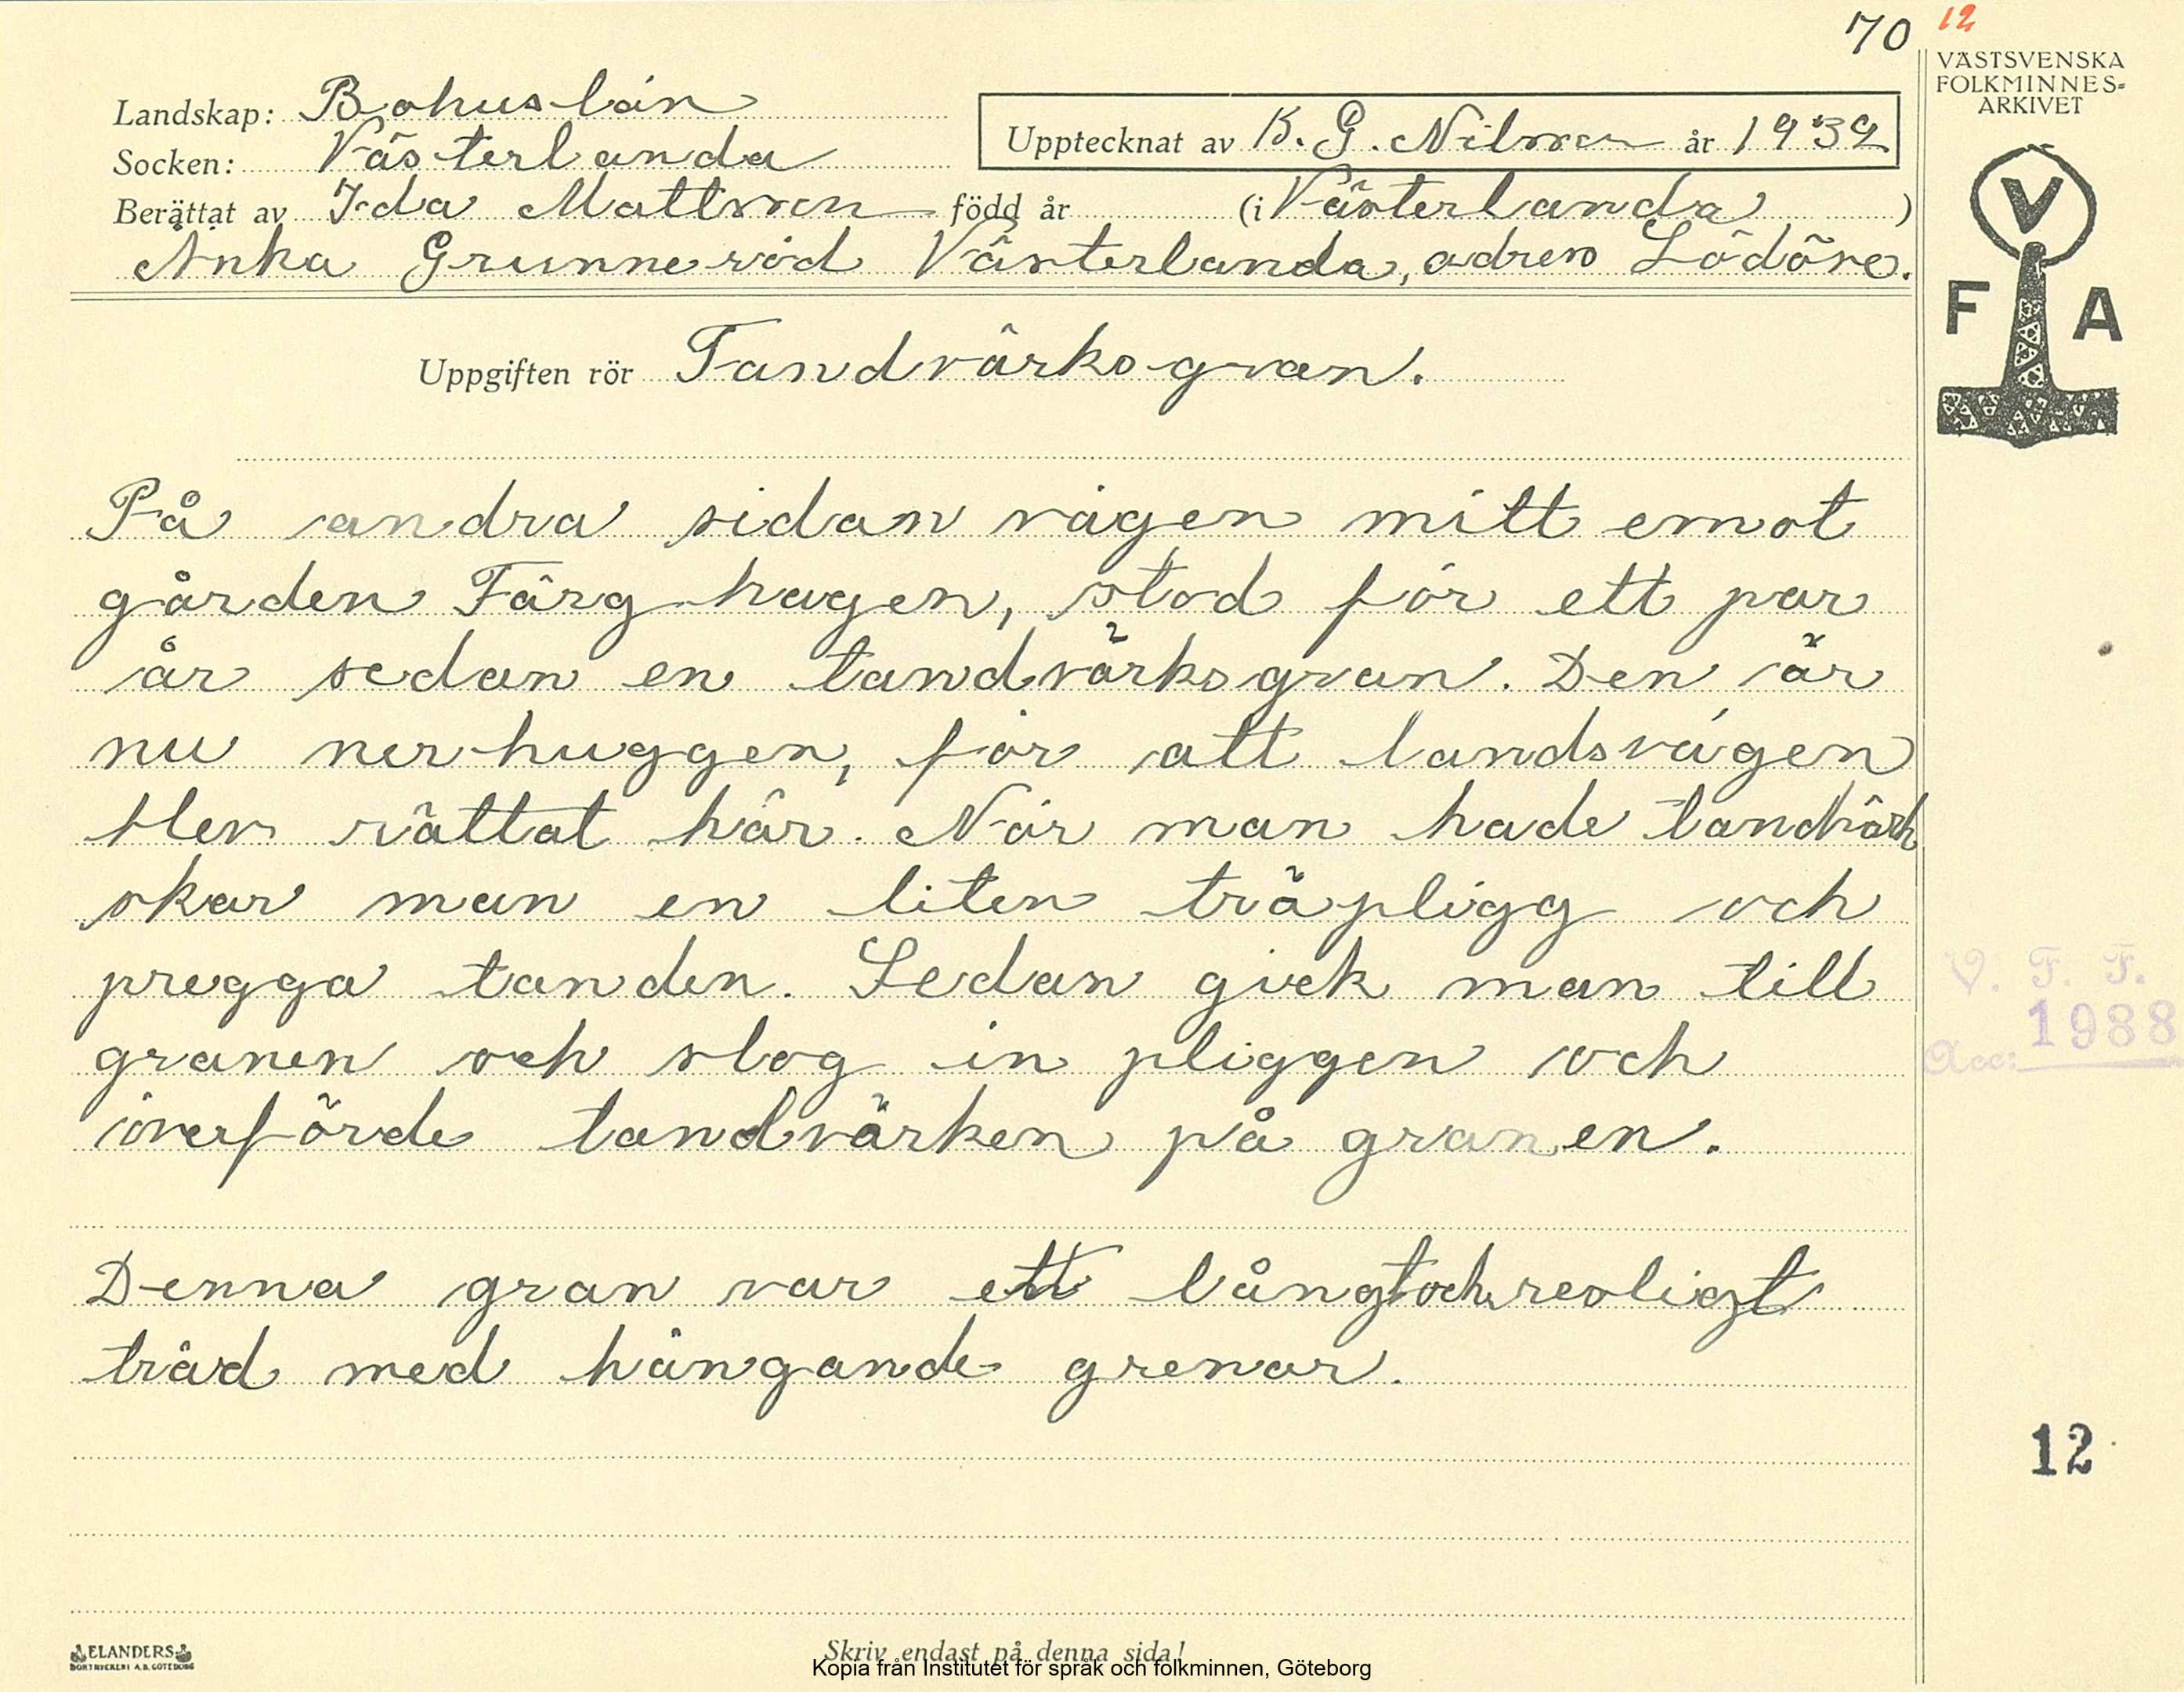 70 12
VÄSTSVENSKA
FOLKMINNES-
ARKIVET
Landskap: Bohuslän
Socken: Västerlanda
Upptecknat av K. G. Nilsson år 1939
Berättat av Ida Mattsson född år (i Västerlanda )
Änka Grunneröd Västerlanda, adress Lödöse.
V
F A
Uppgiften rör Tandvärksgran.
På andra sidan vägen mitt emot
gården Färghagen, stod för ett par
år sedan en tandvärksgran. Den är
nu nerhuggen, för att landsvägen
blev rättat här. När man hade tandvärk
skar man en liten träpligg och
pregga tanden. Sedan gick man till
granen och slog in pliggen och
överförde tandvärken på granen.
V. F. F.
Acc: 1988
Denna gran var ett långt och resligt
träd med hängande grenar.
12
ELANDERS
BOKTRYCKERI A.B. GÖTEBORG
Skriv endast på denna sida!
Kopia från Institutet för språk och folkminnen, Göteborg